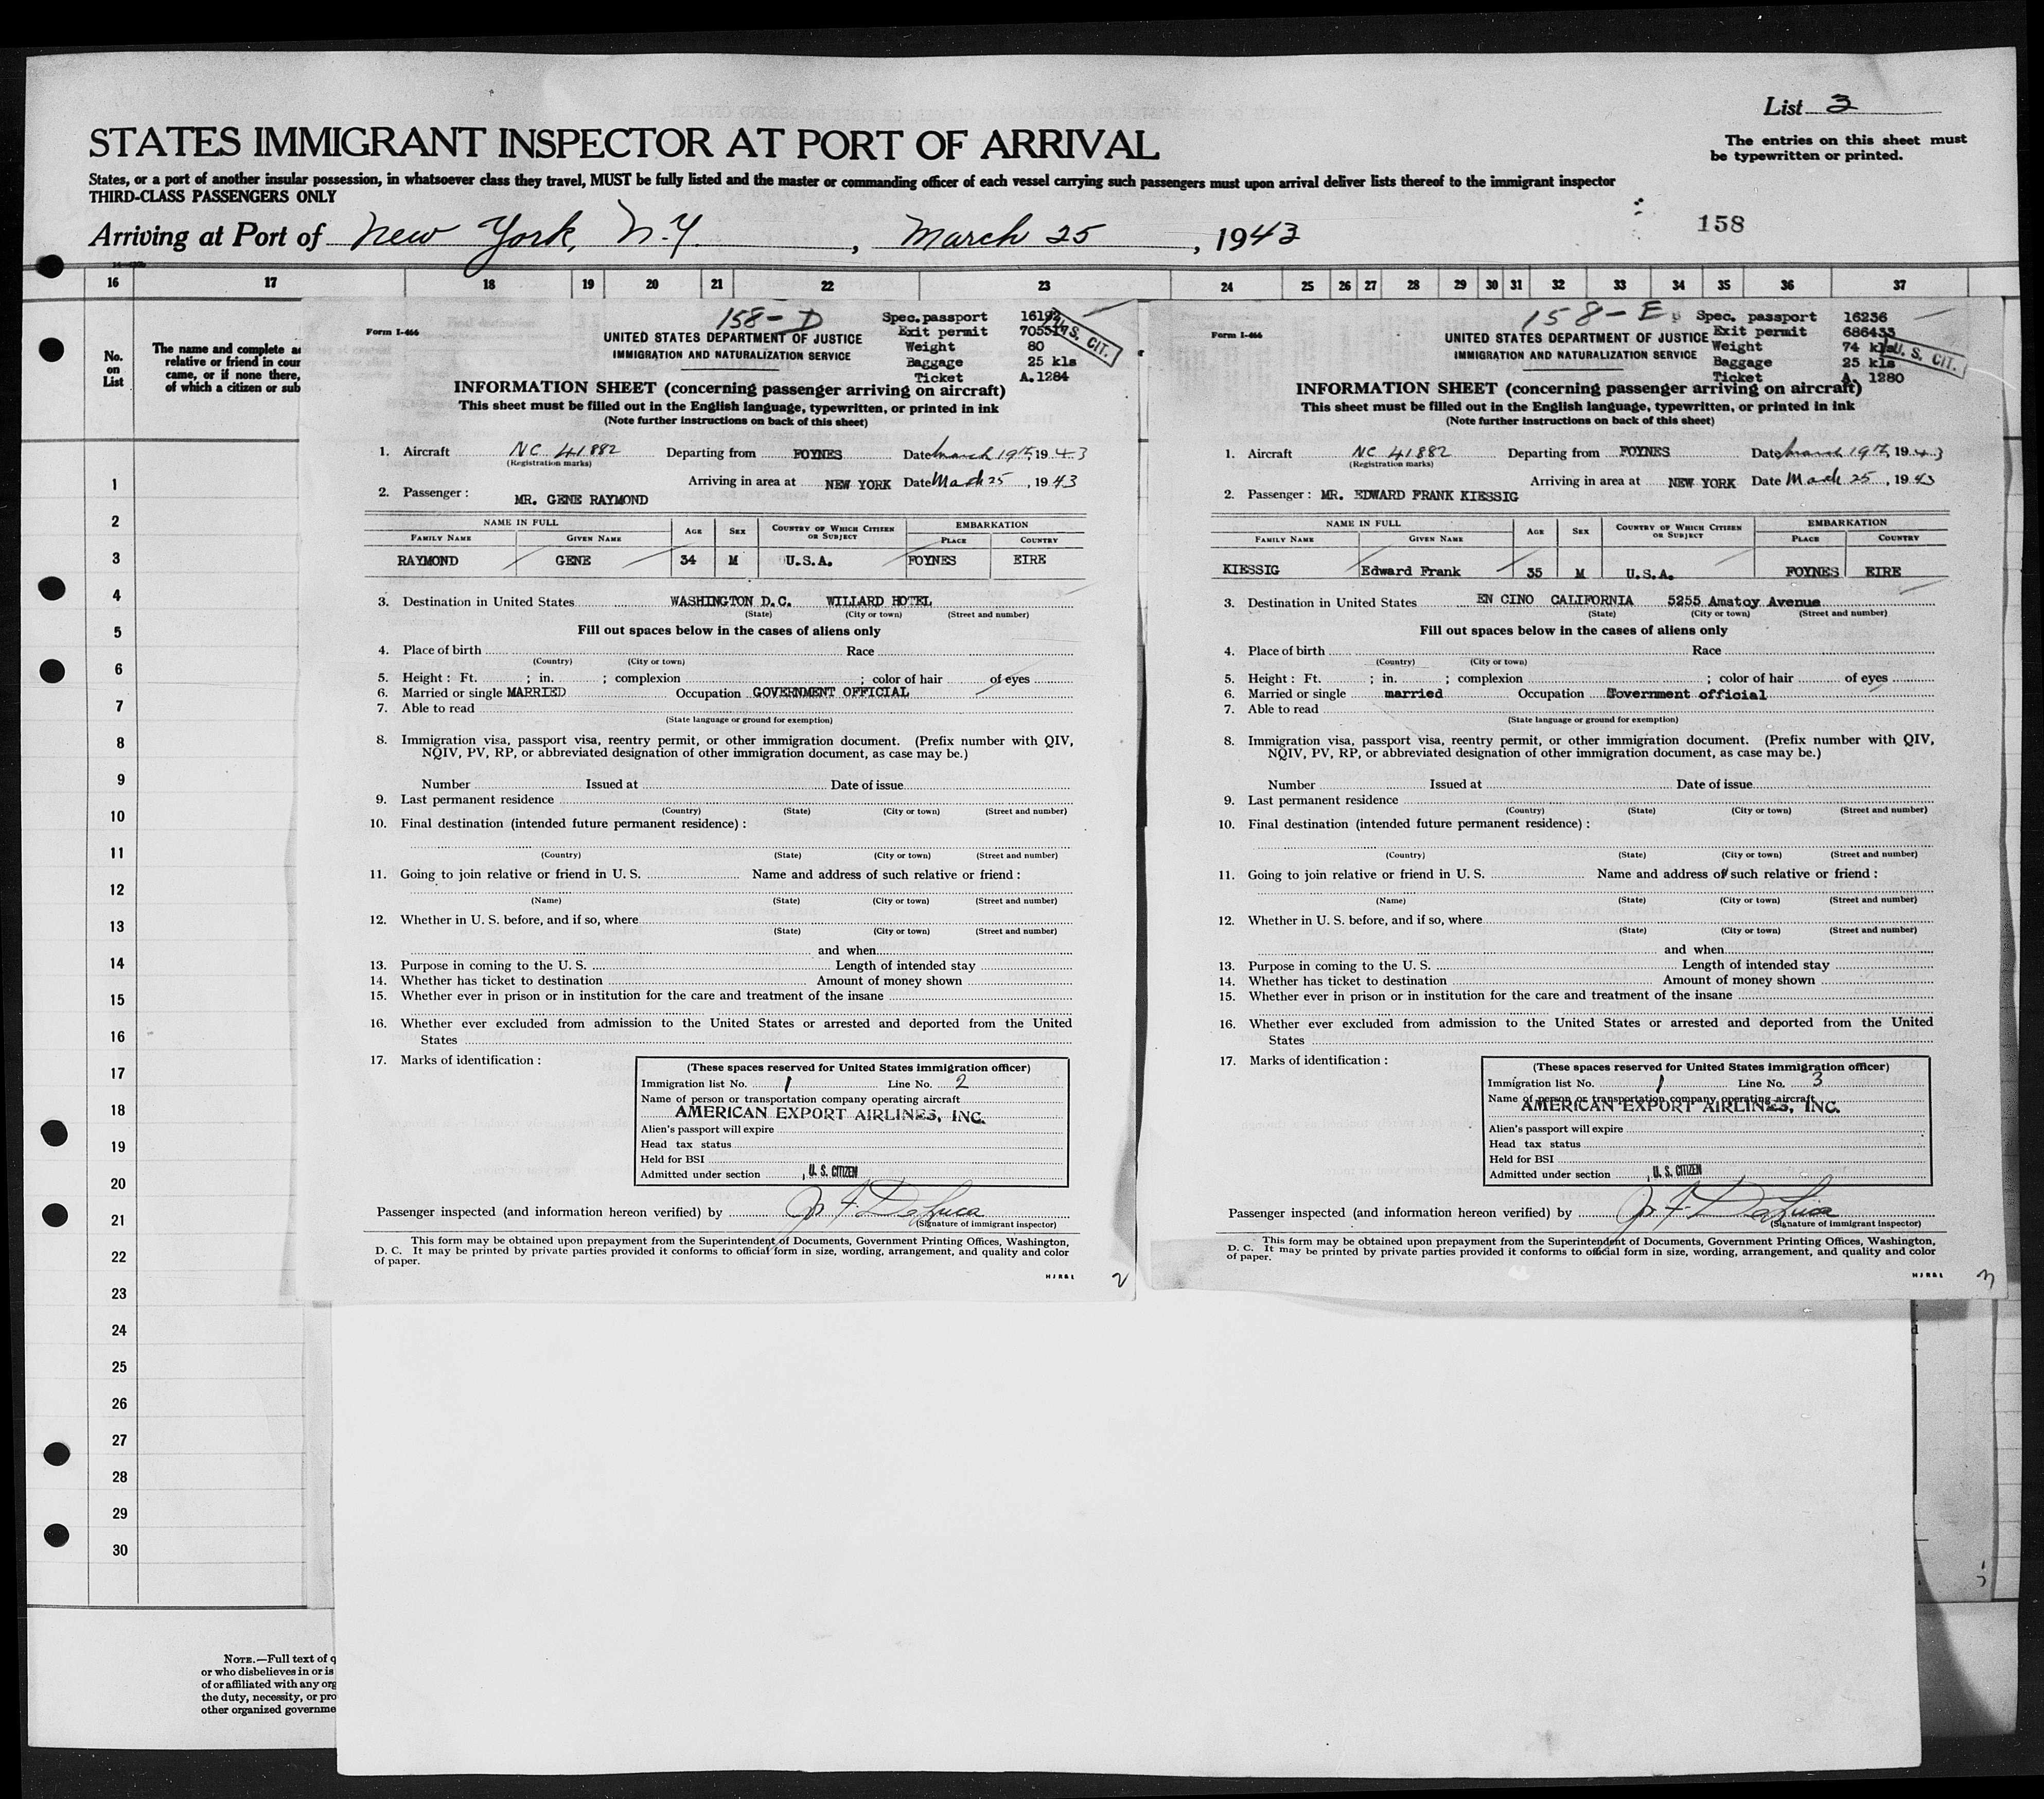 List 3
STATES IMMIGRANT INSPECTOR AT PORT OF ARRIVAL
The entries on this sheet must
be typewritten or printed.
States, or a port of another insular possession, in whatsoever class they travel, MUST be fully listed and the master or commanding officer of each vessel carrying such passengers must upon arrival deliver lists thereof to the immigrant inspector
THIRD-CLASS PASSENGERS ONLY
158
Arriving at Port of New York, N.Y. , March 25 , 1943
16 17 18 19 20 21 22 23 24 25 26 27 28 29 30 31 32 33 34 35 36 37
No.
on
List
The name and complete
relative or friend in cour
came, or if none there,
of which a citizen or sub
1
2
3
4
5
6
7
8
9
10
11
12
13
14
15
16
17
18
19
20
21
22
23
24
25
26
27
28
29
30
NOTE.—Full text of q
or who disbelieves in or is
of or affiliated with any org
the duty, necessity, or pro
other organized governme
158-D
Form I-466
Spec. passport
UNITED STATES DEPARTMENT OF JUSTICE
Exit permit
IMMIGRATION AND NATURALIZATION SERVICE
Weight 80
Baggage 25 kls
Ticket A.1284
U. S. CIT.
INFORMATION SHEET (concerning passenger arriving on aircraft)
This sheet must be filled out in the English language, typewritten, or printed in ink
(Note further instructions on back of this sheet)
1. Aircraft NC 41882 Departing from FOYNES Date March 19th, 1943
(Registration marks)
Arriving in area at NEW YORK Date March 25, 1943
2. Passenger: MR. GENE RAYMOND
NAME IN FULL AGE SEX COUNTRY OF WHICH CITIZEN OR SUBJECT EMBARKATION
FAMILY NAME GIVEN NAME PLACE COUNTRY
RAYMOND GENE 34 M U.S.A. FOYNES EIRE
3. Destination in United States WASHINGTON D.C. WILLARD HOTEL
(State) (City or town) (Street and number)
Fill out spaces below in the cases of aliens only
4. Place of birth Race
(Country) (City or town)
5. Height: Ft. ; in. ; complexion ; color of hair of eyes
6. Married or single MARRIED Occupation GOVERNMENT OFFICIAL
7. Able to read
(State language or ground for exemption)
8. Immigration visa, passport visa, reentry permit, or other immigration document. (Prefix number with QIV,
NQIV, PV, RP, or abbreviated designation of other immigration document, as case may be.)
Number Issued at Date of issue
9. Last permanent residence
(Country) (State) (City or town) (Street and number)
10. Final destination (intended future permanent residence):
(Country) (State) (City or town) (Street and number)
11. Going to join relative or friend in U. S. Name and address of such relative or friend:
(Name) (State) (City or town) (Street and number)
12. Whether in U. S. before, and if so, where
(State) (City or town) (Street and number)
and when
13. Purpose in coming to the U. S. Length of intended stay
14. Whether has ticket to destination Amount of money shown
15. Whether ever in prison or in institution for the care and treatment of the insane
16. Whether ever excluded from admission to the United States or arrested and deported from the United
States
17. Marks of identification:
(These spaces reserved for United States immigration officer)
Immigration list No. 1 Line No. 2
Name of person or transportation company operating aircraft
AMERICAN EXPORT AIRLINES, INC.
Alien's passport will expire
Head tax status
Held for BSI
Admitted under section U. S. CITIZEN
Passenger inspected (and information hereon verified) by
(Signature of immigrant inspector)
This form may be obtained upon prepayment from the Superintendent of Documents, Government Printing Offices, Washington,
D. C. It may be printed by private parties provided it conforms to official form in size, wording, arrangement, and quality and color
of paper.
HJR&L
2
158-E
Form I-466
Spec. passport 16236
UNITED STATES DEPARTMENT OF JUSTICE
Exit permit 686433
IMMIGRATION AND NATURALIZATION SERVICE
Weight 74 kls
Baggage 25 kls
Ticket A. 1280
U. S. CIT.
INFORMATION SHEET (concerning passenger arriving on aircraft)
This sheet must be filled out in the English language, typewritten, or printed in ink
(Note further instructions on back of this sheet)
1. Aircraft NC 41882 Departing from FOYNES Date March 19th, 1943
(Registration marks)
Arriving in area at NEW YORK Date March 25, 1943
2. Passenger: MR. EDWARD FRANK KIESSIG
NAME IN FULL AGE SEX COUNTRY OF WHICH CITIZEN OR SUBJECT EMBARKATION
FAMILY NAME GIVEN NAME PLACE COUNTRY
KIESSIG Edward Frank 35 M U.S.A. FOYNES EIRE
3. Destination in United States EN CINO CALIFORNIA 5255 Amstoy Avenue
(State) (City or town) (Street and number)
Fill out spaces below in the cases of aliens only
4. Place of birth Race
(Country) (City or town)
5. Height: Ft. ; in. ; complexion ; color of hair of eyes
6. Married or single married Occupation Government official
7. Able to read
(State language or ground for exemption)
8. Immigration visa, passport visa, reentry permit, or other immigration document. (Prefix number with QIV,
NQIV, PV, RP, or abbreviated designation of other immigration document, as case may be.)
Number Issued at Date of issue
9. Last permanent residence
(Country) (State) (City or town) (Street and number)
10. Final destination (intended future permanent residence):
(Country) (State) (City or town) (Street and number)
11. Going to join relative or friend in U. S. Name and address of such relative or friend:
(Name) (State) (City or town) (Street and number)
12. Whether in U. S. before, and if so, where
(State) (City or town) (Street and number)
and when
13. Purpose in coming to the U. S. Length of intended stay
14. Whether has ticket to destination Amount of money shown
15. Whether ever in prison or in institution for the care and treatment of the insane
16. Whether ever excluded from admission to the United States or arrested and deported from the United
States
17. Marks of identification:
(These spaces reserved for United States immigration officer)
Immigration list No. 1 Line No. 3
Name of person or transportation company operating aircraft
AMERICAN EXPORT AIRLINES, INC.
Alien's passport will expire
Head tax status
Held for BSI
Admitted under section U. S. CITIZEN
Passenger inspected (and information hereon verified) by
(Signature of immigrant inspector)
This form may be obtained upon prepayment from the Superintendent of Documents, Government Printing Offices, Washington,
D. C. It may be printed by private parties provided it conforms to official form in size, wording, arrangement, and quality and color
of paper.
HJR&L
3